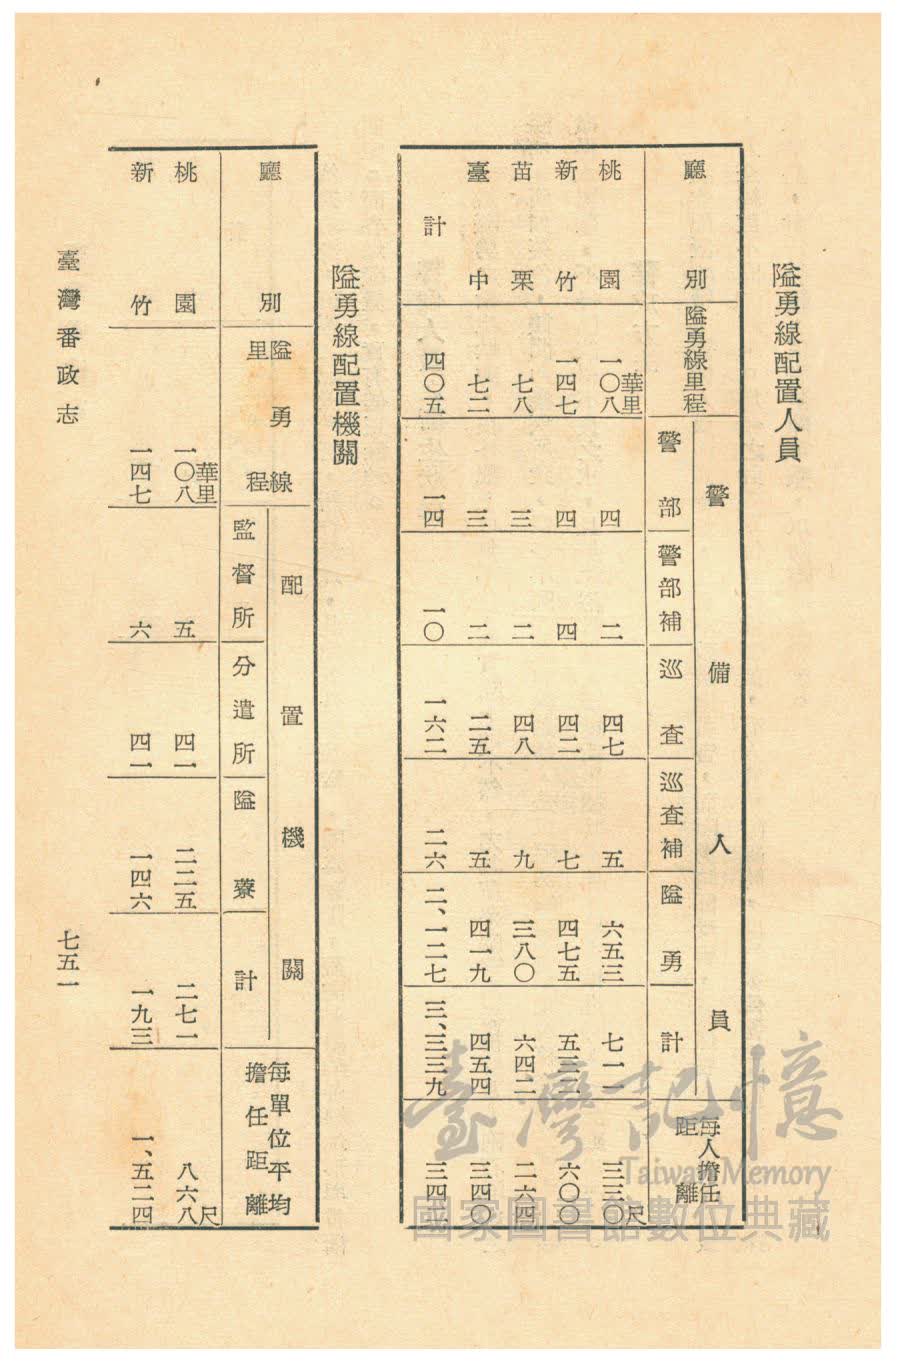 隘勇線配置人員
廳別 隘勇線里程 警備人員 每人擔任距離
警部 警部補 巡查 巡查補 隘勇 計
桃園 一〇八華里 四 二 四七 五 六五三 七一一 三三〇尺
新竹 一四七 四 四 四二 七 四七五 五三二 六〇〇
苗栗 七八 三 二 四八 九 三八〇 六四二 二六四
臺中 七二 三 二 二五 五 四一九 四五四 三四〇
計 四〇五 一四 一〇 一六二 二六 二、一二七 三、三三九 三四二
隘勇線配置機關
廳別 隘勇線里程 配置機關 每單位平均擔任距離
監督所 分遣所 隘藔 計
桃園 一〇八華里 五 四一 二二五 二七一 八六八尺
新竹 一四七 六 四一 一四六 一九三 一、五二四
臺灣番政志
七五一
臺灣記憶
Taiwan Memory
國家圖書館數位典藏